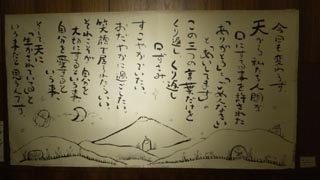 今日も変わらず
天から私たち人間が
口にする事を許された
「ありがとう」「ごめんなさい」
この三つの言葉だけを
くり返し くり返し
口ずさみ
すこやかでいたい
おだやかに過ごしたい
笑顔で居られたらいい
それこそが自分を
大切にするという事
自分を愛すると
いう事
そして天に
生かされていると
いう事だと思うんです